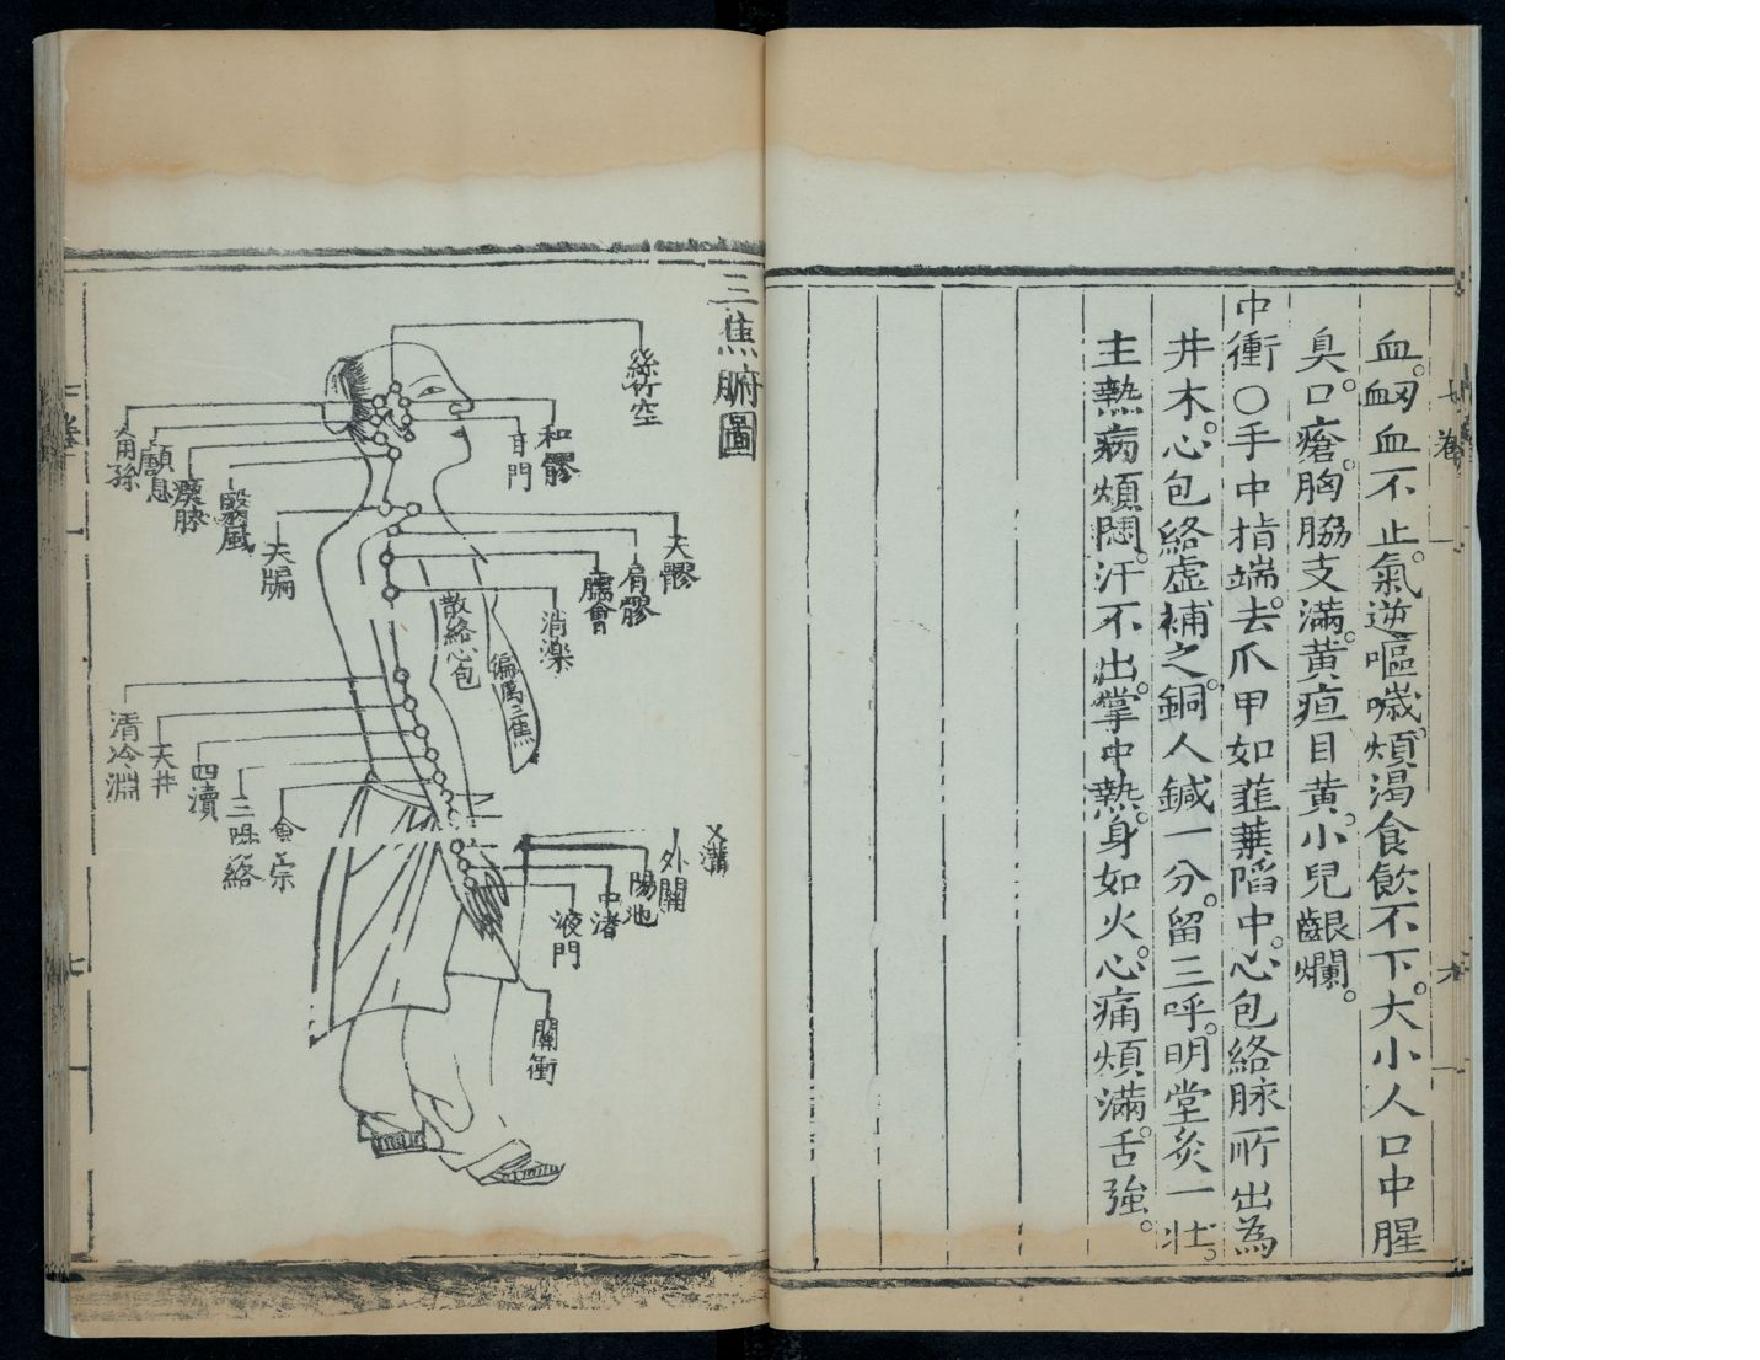 血。衂血不止。氣逆嘔噦。煩渴食飲不下。大小人口中腥
臭。口瘡。胸脇支滿。黄疸目黄。小兒齦爛。
中衝○手中指端。去爪甲如韮葉陷中。心包絡脉所出為
井木。心包絡虚補之。銅人鍼一分。留三呼。明堂灸一壮。
主熱病煩悶。汗不出。掌中熱。身如火。心痛煩滿。舌強。
三焦腑圖
絲竹空
和髎
耳門
角孫
顱息
瘈脉
翳風
天牖
天髎
肩髎
臑會
消濼
散絡心包
徧属三焦
清冷淵
天井
四瀆
三陽絡
會宗
外關
陽池
中渚
液門
關衝